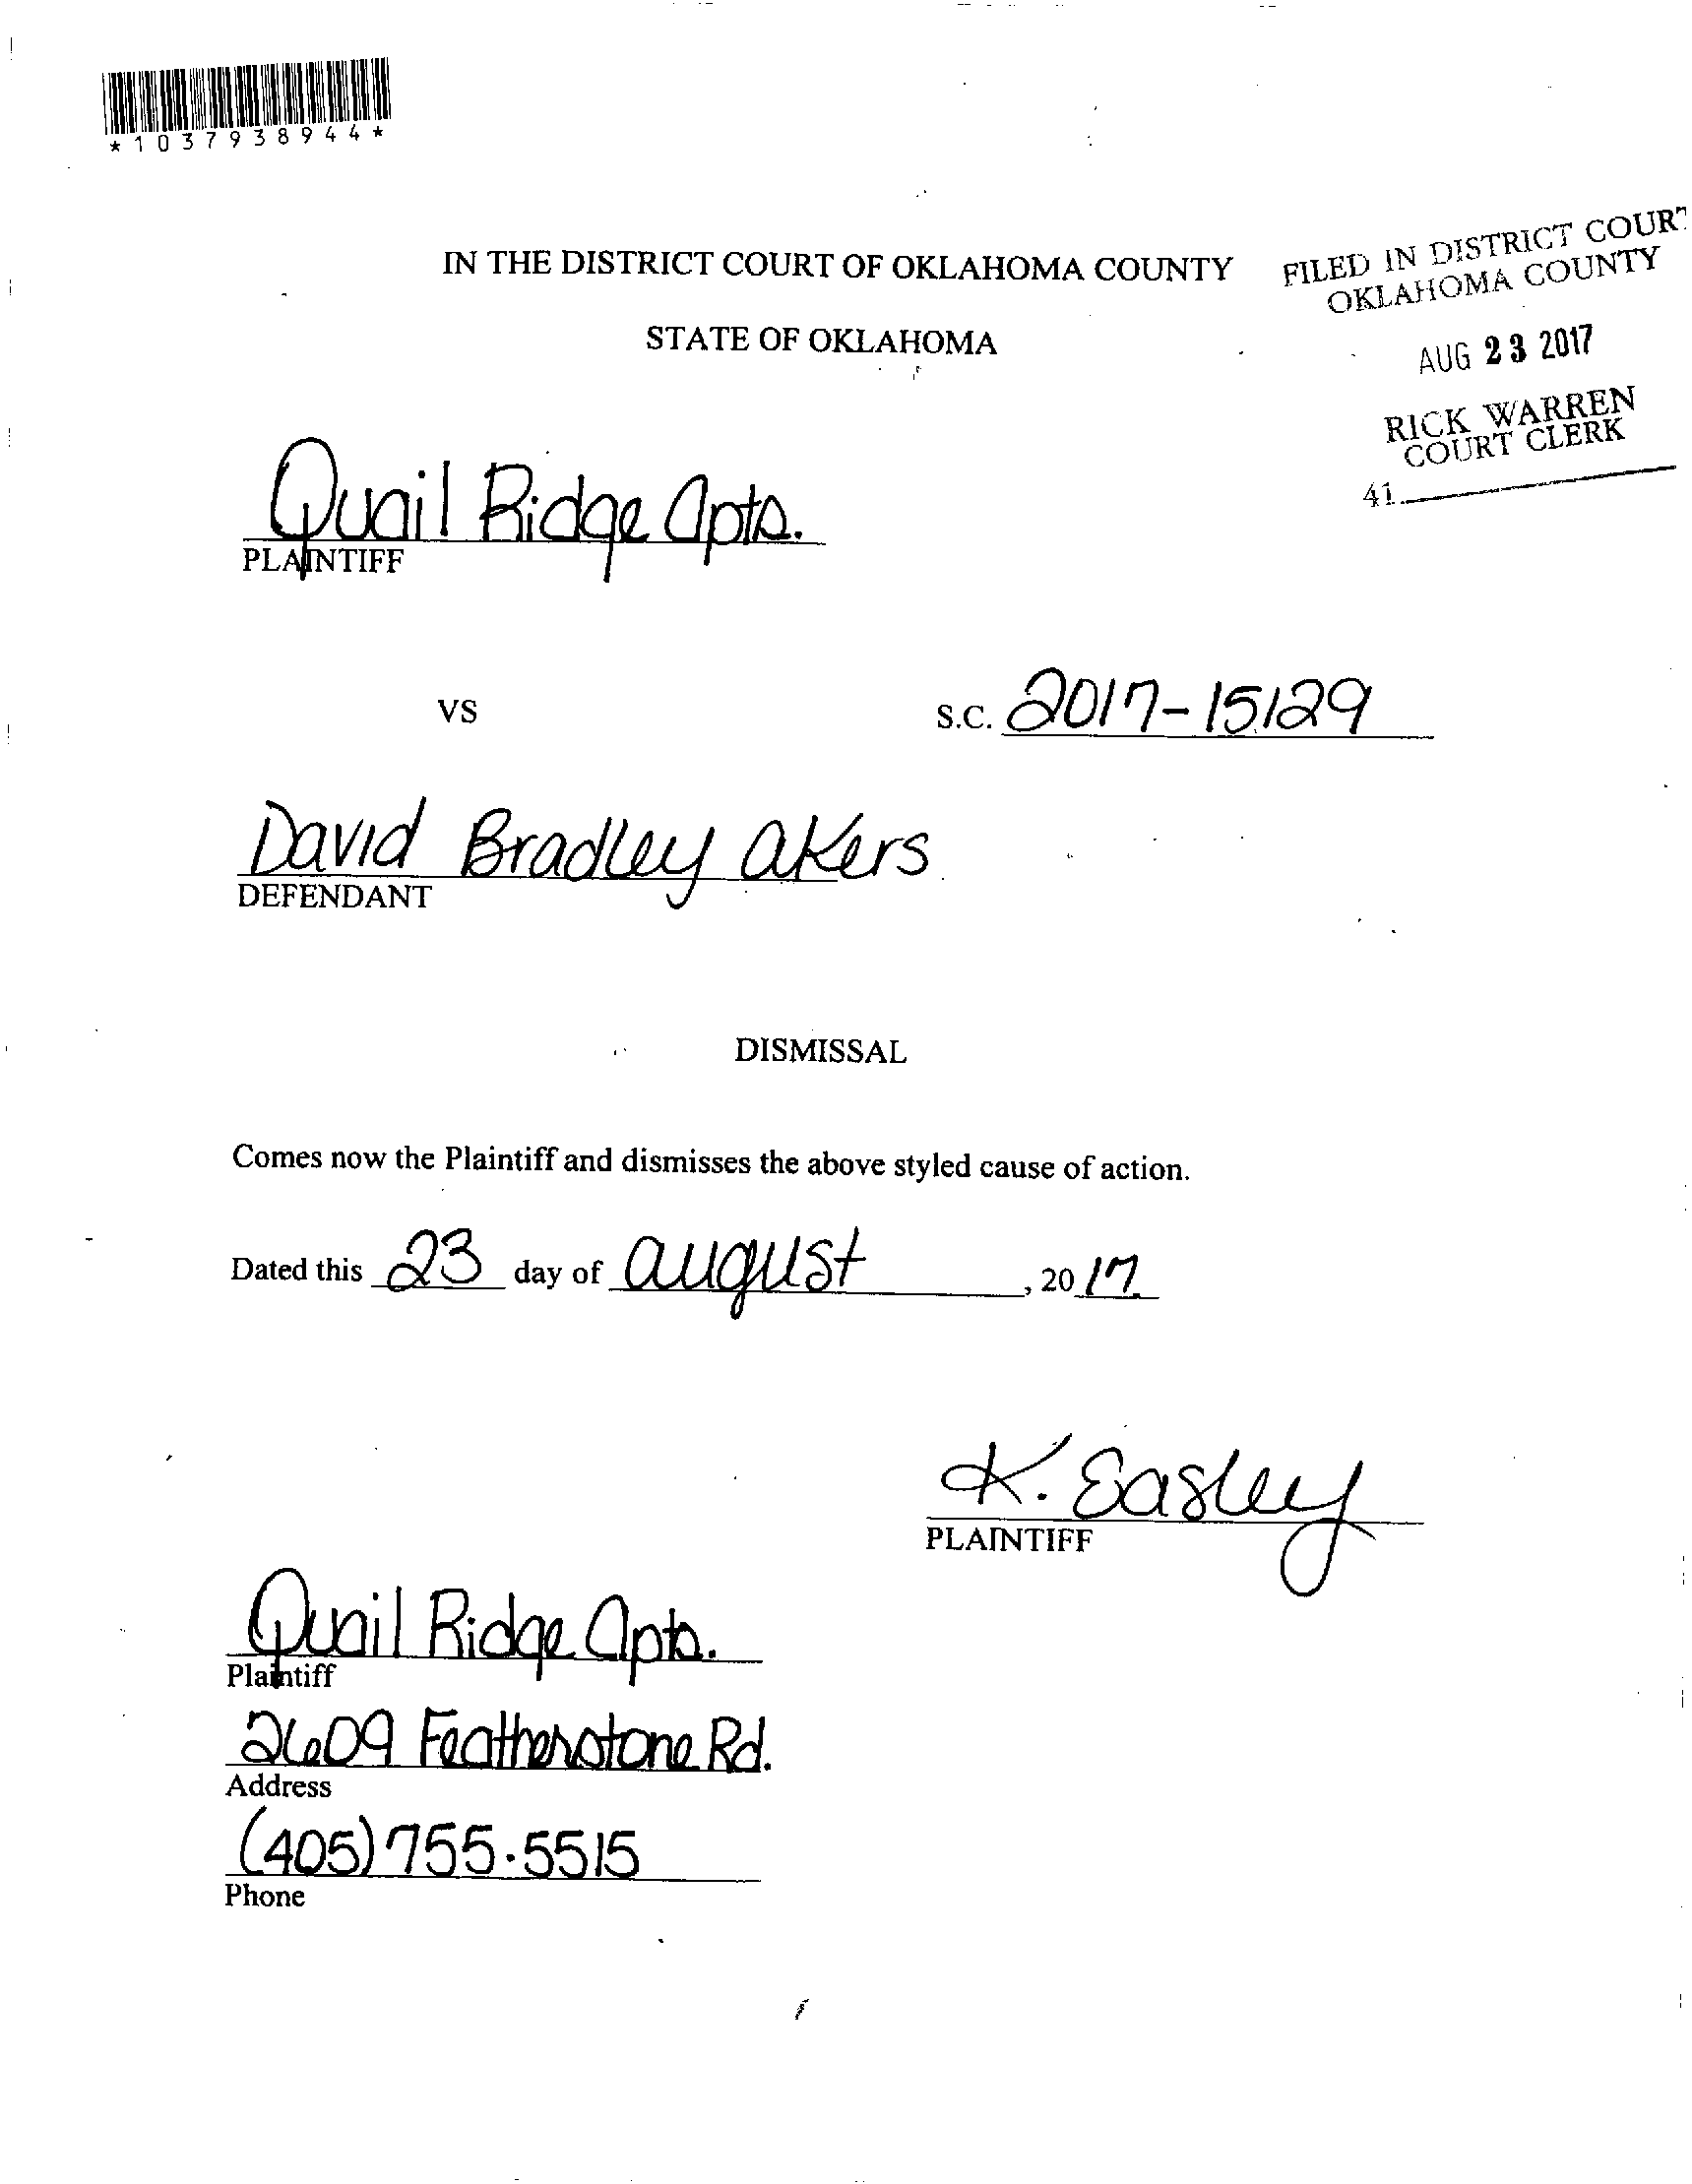 *1037938944*
IN THE DISTRICT COURT OF OKLAHOMA COUNTY
STATE OF OKLAHOMA
FILED IN DISTRICT COURT
OKLAHOMA COUNTY
AUG 23 2017
RICK WARREN
COURT CLERK
41
Quail Ridge Apts.
PLAINTIFF
VS
S.C. 2017-15129
David Bradley Akers
DEFENDANT
DISMISSAL
Comes now the Plaintiff and dismisses the above styled cause of action.
Dated this 23 day of august, 2017.
K. Easley
PLAINTIFF
Quail Ridge Apts.
Plaintiff
2609 Featherstone Rd.
Address
(405) 755-5515
Phone